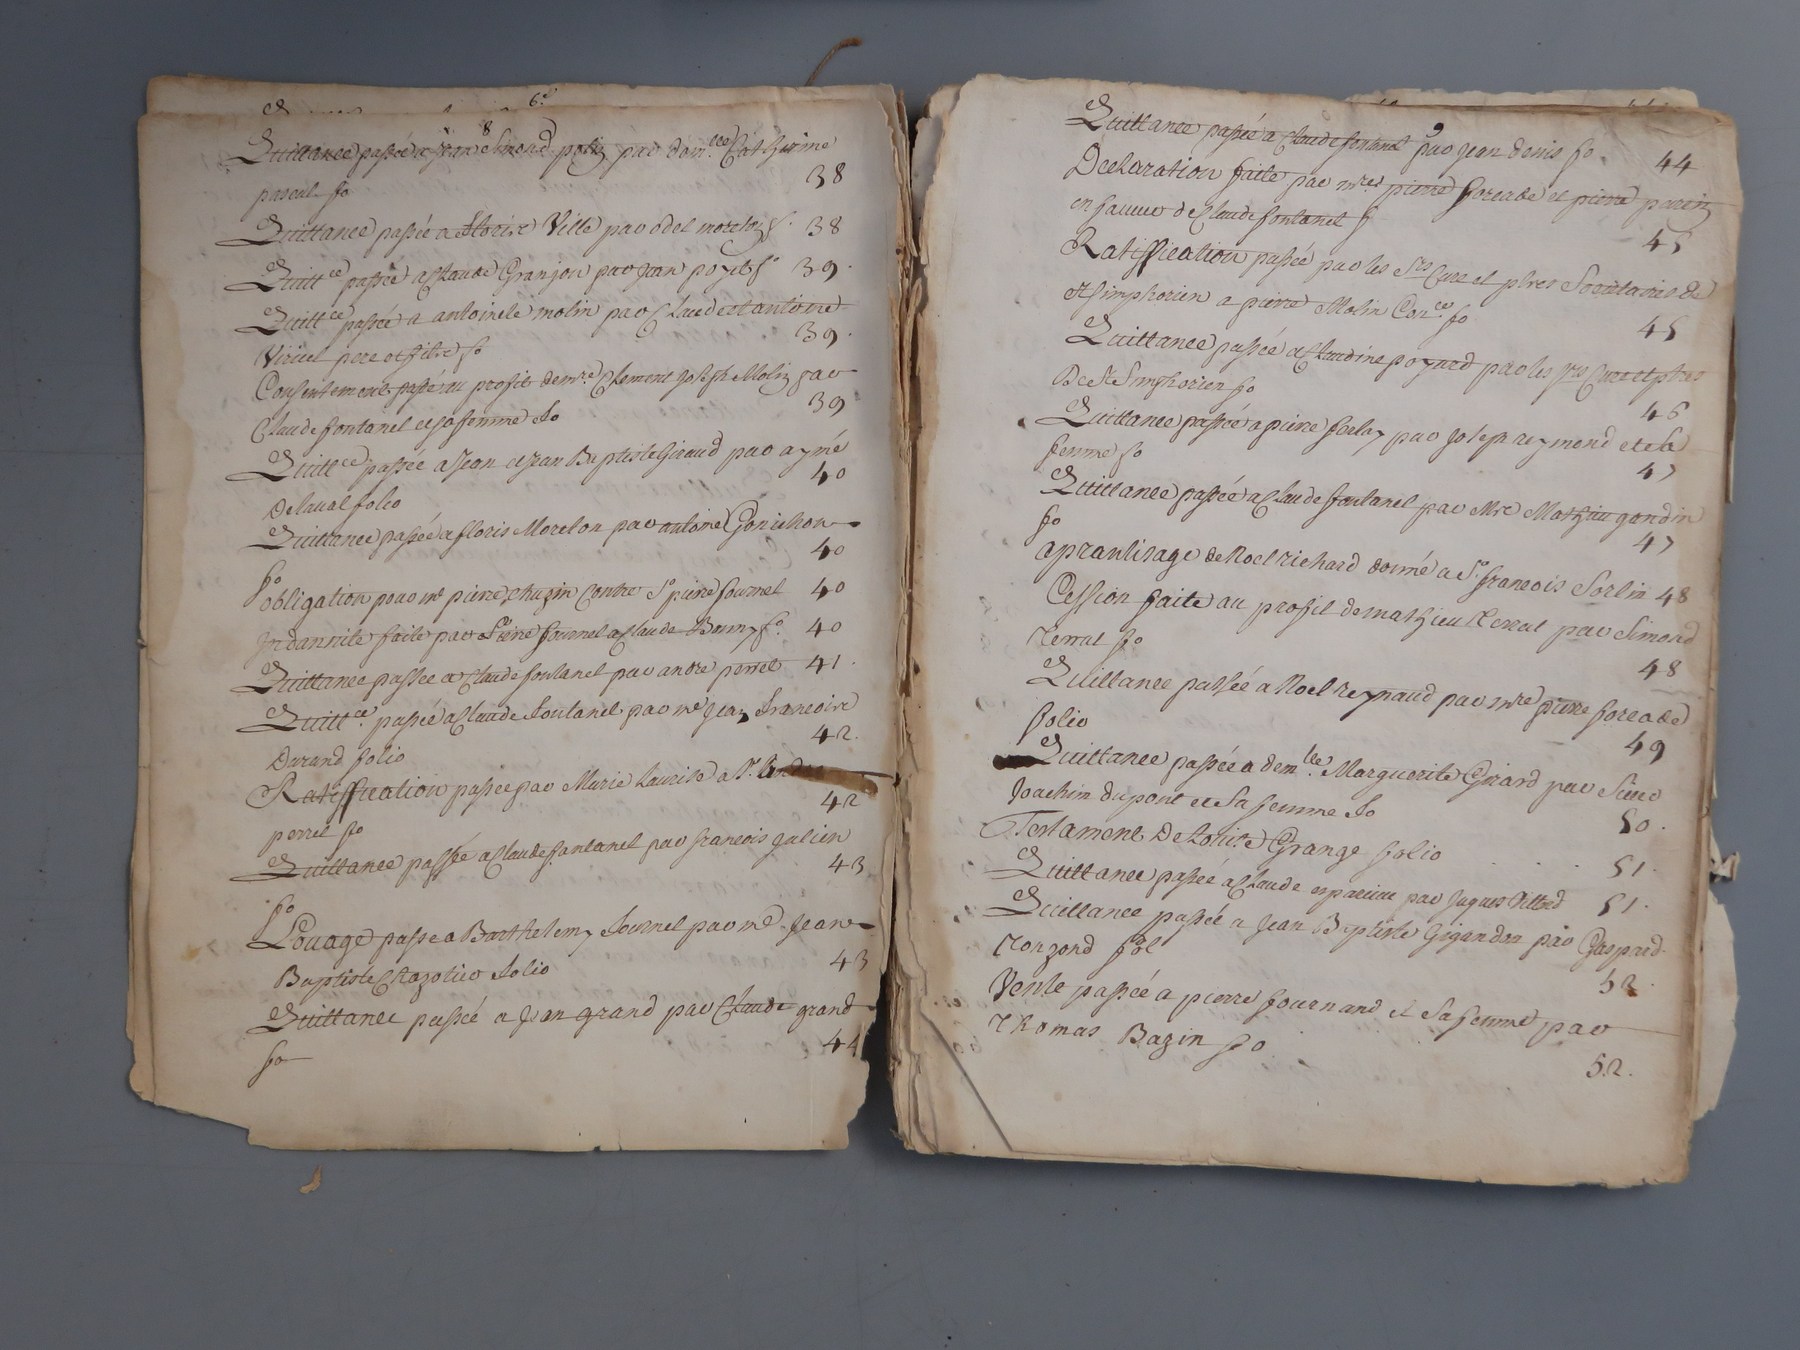 Quittance passée a Jean Simond poliz par dam.lle Catherine
pascal fo 38
Quittance passée a floris Ville par odet moreton f.o 38
Quitt.ce passée a Claude Granjon par Jean poyet f.o 39.
Quitt.ce passée a antoinete molin par Claude et antoine
Viricel pere et fils fo 39.
Consentement passé au profit de m.re Clement Joseph Molin par
Claude fontanel et sa femme fo 39
Quitt.ce passée a Jean et Jean Baptiste Giraud par aymé
Delaval folio 40
Quittance passée a floris Morelon par antoine Gonichon
fo 40
obligation pour m.e pierre chazin contre S.r pierre fournel 40
Indamnite faite par Pierre fournel a Claude Bonny f.o 40
Quittance passée a Claude fontanel par andre perret 41.
Quitt.ce passée a Claude fontanel par m.e Jean francoise
Durand folio 42.
Ratiffication passée par Marie Laurise a S.r
perret fo 42
Quittance passée a Claude fontanel par francois Julien
fo 43
Louage passe a Barthelemy fournel par m.e Jean
Baptiste Chazotier folio 43
Quittance passée a Jean grand par Claude grand
fo 44
Quittance passée a Claude fontanel par Jean denis fo. 44
Declaration faite par m.res pierre foreade et pierre parin
en faveur de Claude fontanel f 45
Ratiffication passée par les S.rs Cure et pbres Societaires de
st simphorien a pierre Molin Con.er fo 45
Quittance passée a Claudine poynard par les S.rs Cure et pbres
De St Simphorien fo 46
Quittance passée a pierre forlay par Joseph reymond et sa
femme fo 47
Quittance passée a Claude fontanel par Mre Mathieu gondin
fo 47
aprantisage de Noel richard donné a S.r francois Sorlin 48
Cession faite au profit de mathieu Terrat par Simond
Terrat fo 48
Quittance passée a Noel reynaud par mre pierre foreade
folio 49
Quittance passée a dem.lle Marguerite Girard par Sieur
Joachin dupont et sa femme fo 50.
Testament De Louise Grange folio 51.
Quittance passée a Claude esparcieu par Jaques Villord 51.
Quittance passée a Jean Baptiste Gigandon par Gaspard
Tonzond fol 52.
Vente passée a pierre fournand et sa femme par
Thomas Bazin fo 52.